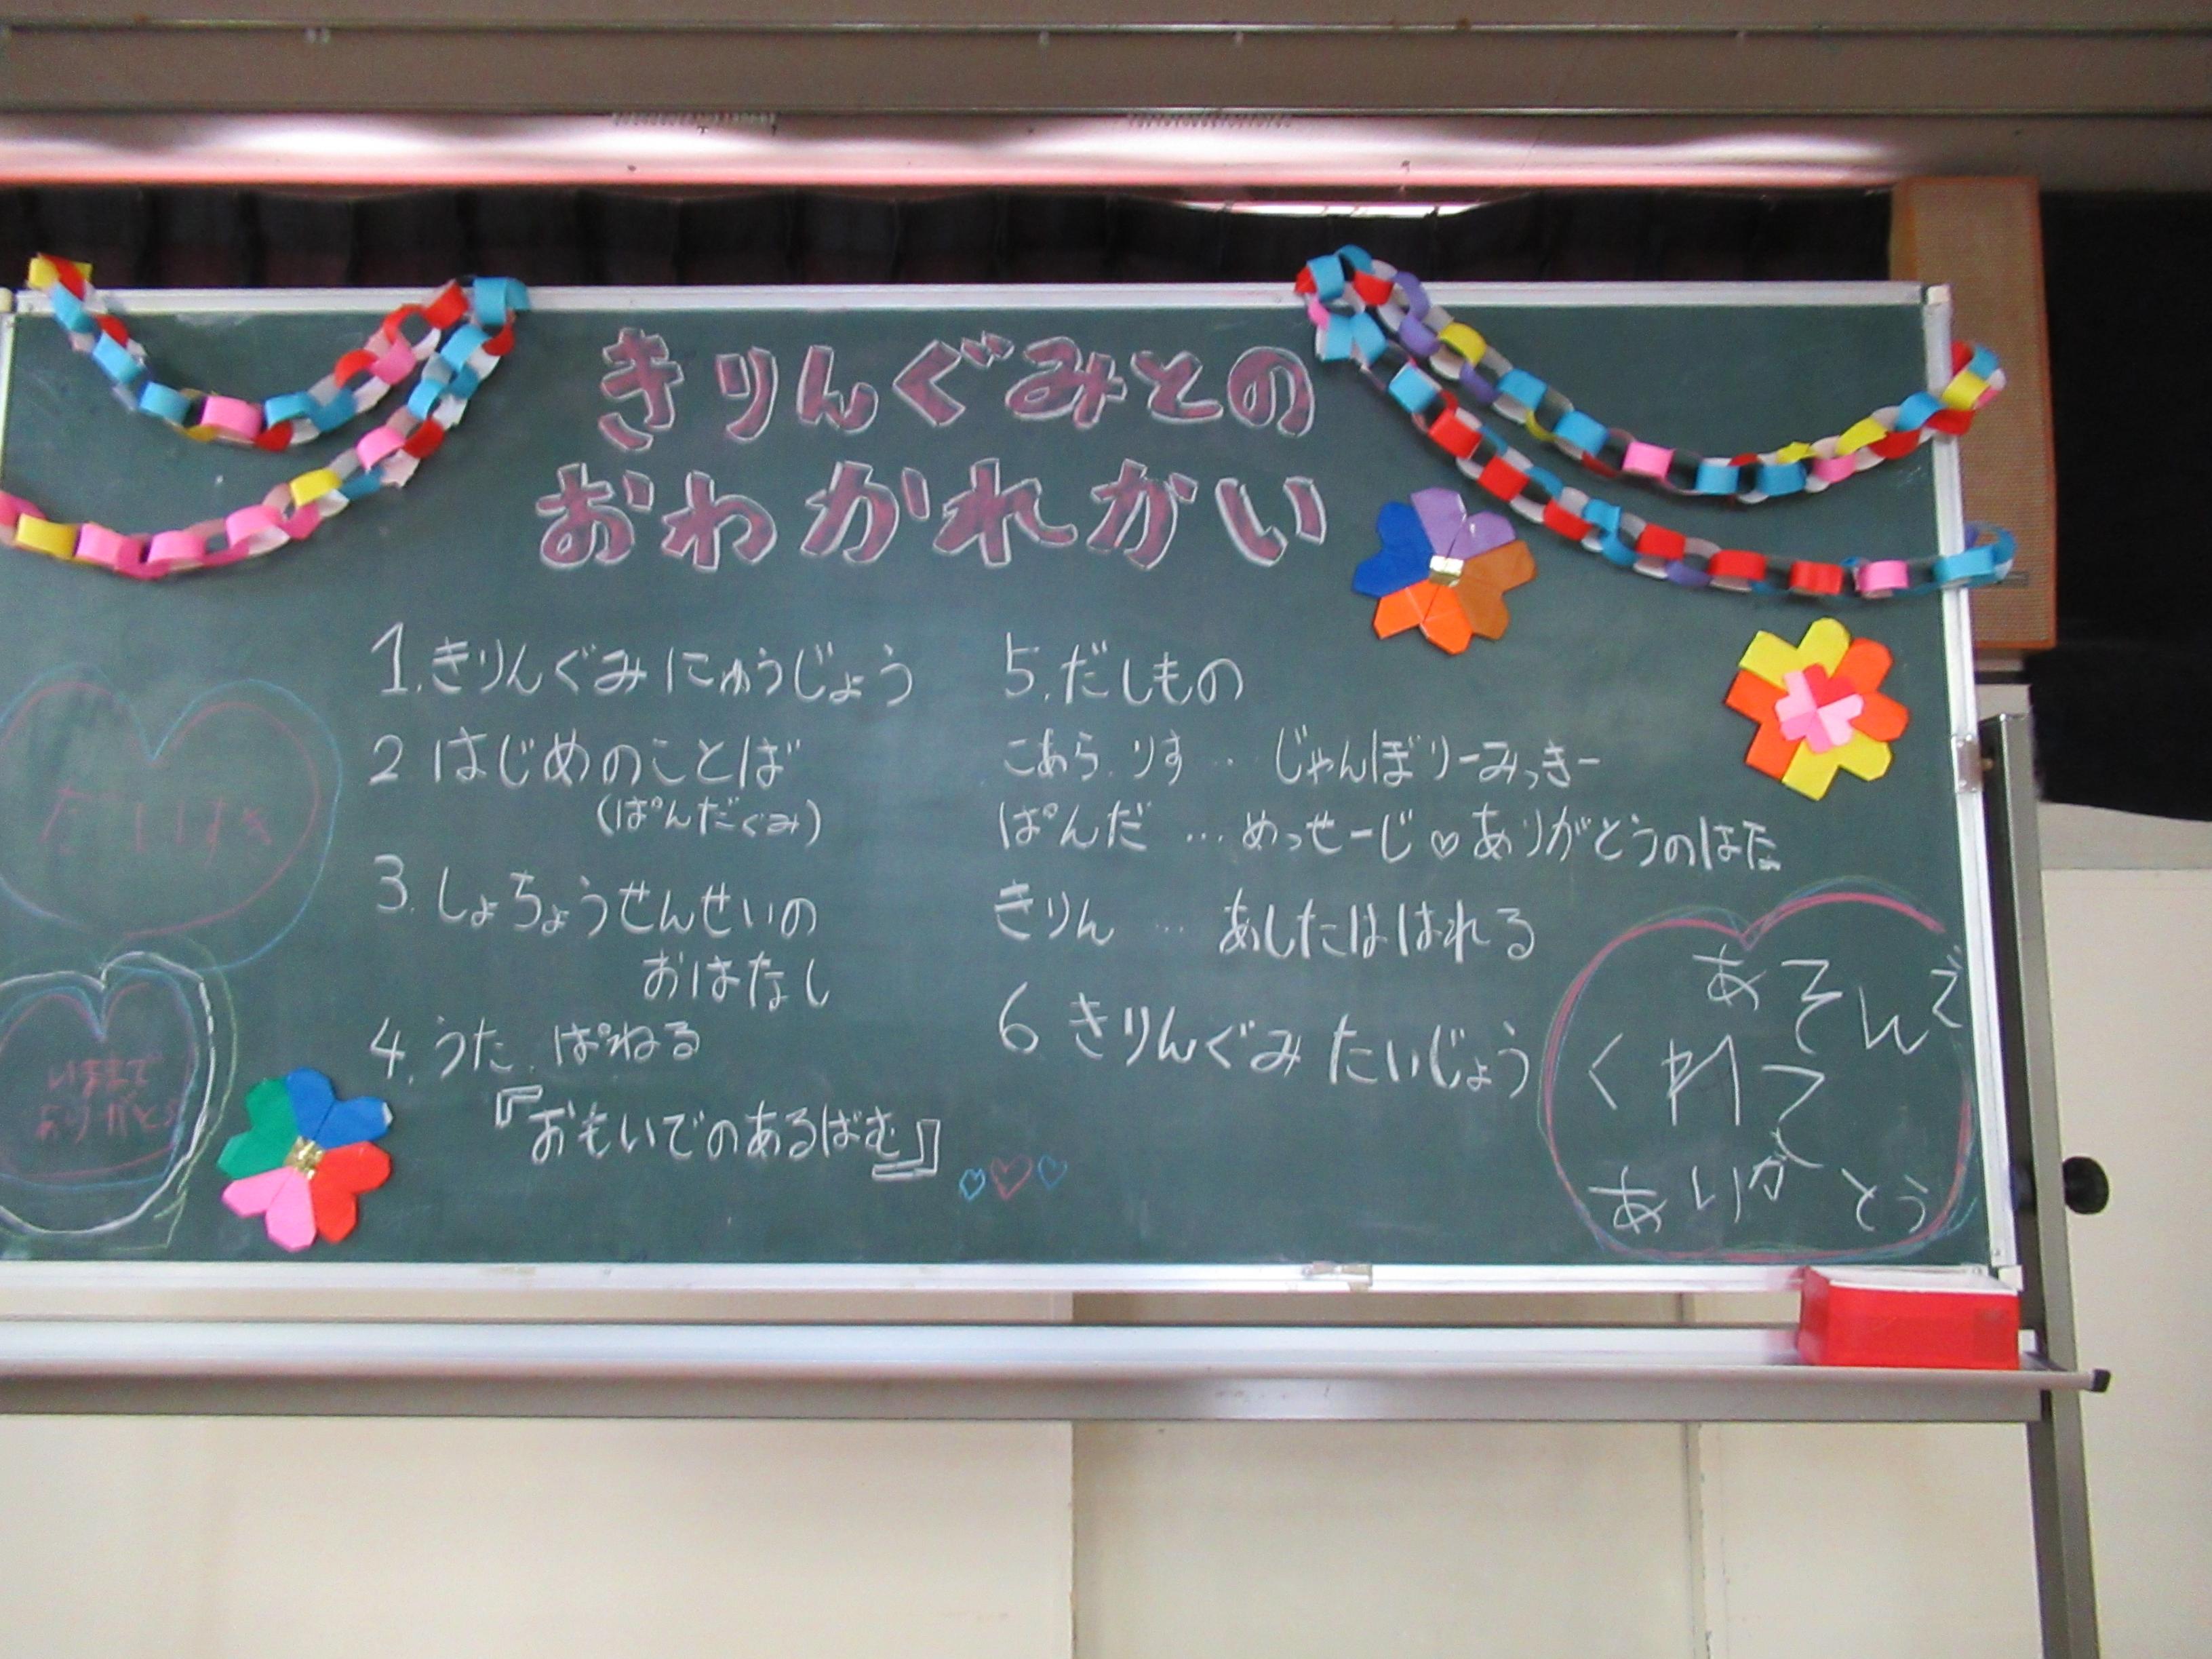 きりんぐみとの
おわかれかい
1.きりんぐみ にゅうじょう
2 はじめのことば
(ぱんだぐみ)
3.しょちょうせんせいの
おはなし
4.うた.ぱねる
『おもいでのあるばむ』
5.だしもの
こあら.りす… じゃんぼりーみっきー
ぱんだ …めっせーじ♡ありがとうのはた
きりん … あしたははれる
6 きりんぐみ たいじょう
だいすき
いままで
ありがとう
あそんで
くれて
ありがとう